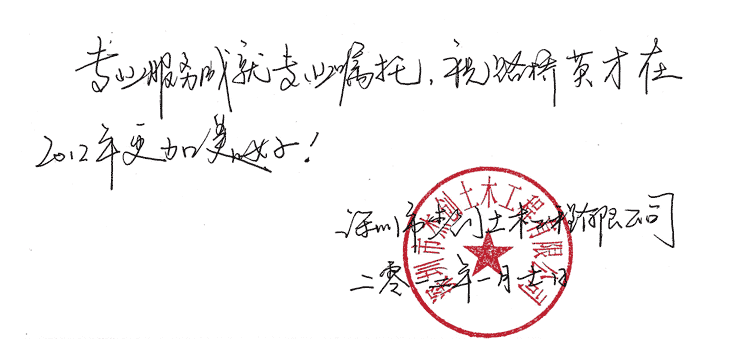 专业服务成就专业嘱托,祝路桥英才在
2012年更加美好!
深圳市杰创土木工程有限公司
二零一二年一月十一日
深圳市杰创土木工程有限公司